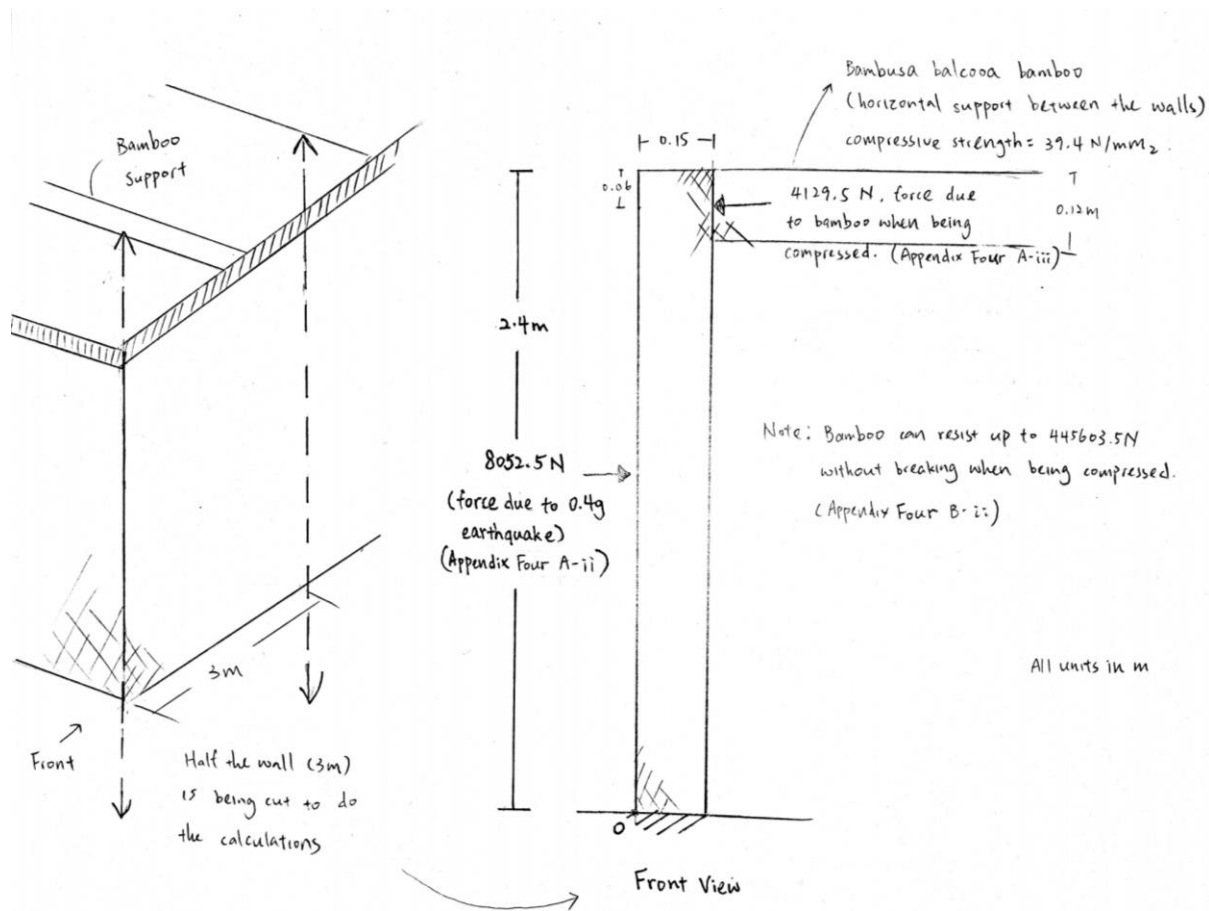 Bamboo
support
3m
Front
Half the wall (3m)
is being cut to do
the calculations
2.4m
8052.5 N
(force due to 0.4g
earthquake)
(Appendix Four A-ii)
0.15
0.06
Bambusa balcooa bamboo
(horizontal support between the walls)
compressive strength = 39.4 N/mm2.
4129.5 N, force due
to bamboo when being
compressed. (Appendix Four A-iii)
0.12m
Note: Bamboo can resist up to 445603.5N
without breaking when being compressed.
(Appendix Four B-ii)
All units in m
O
Front View